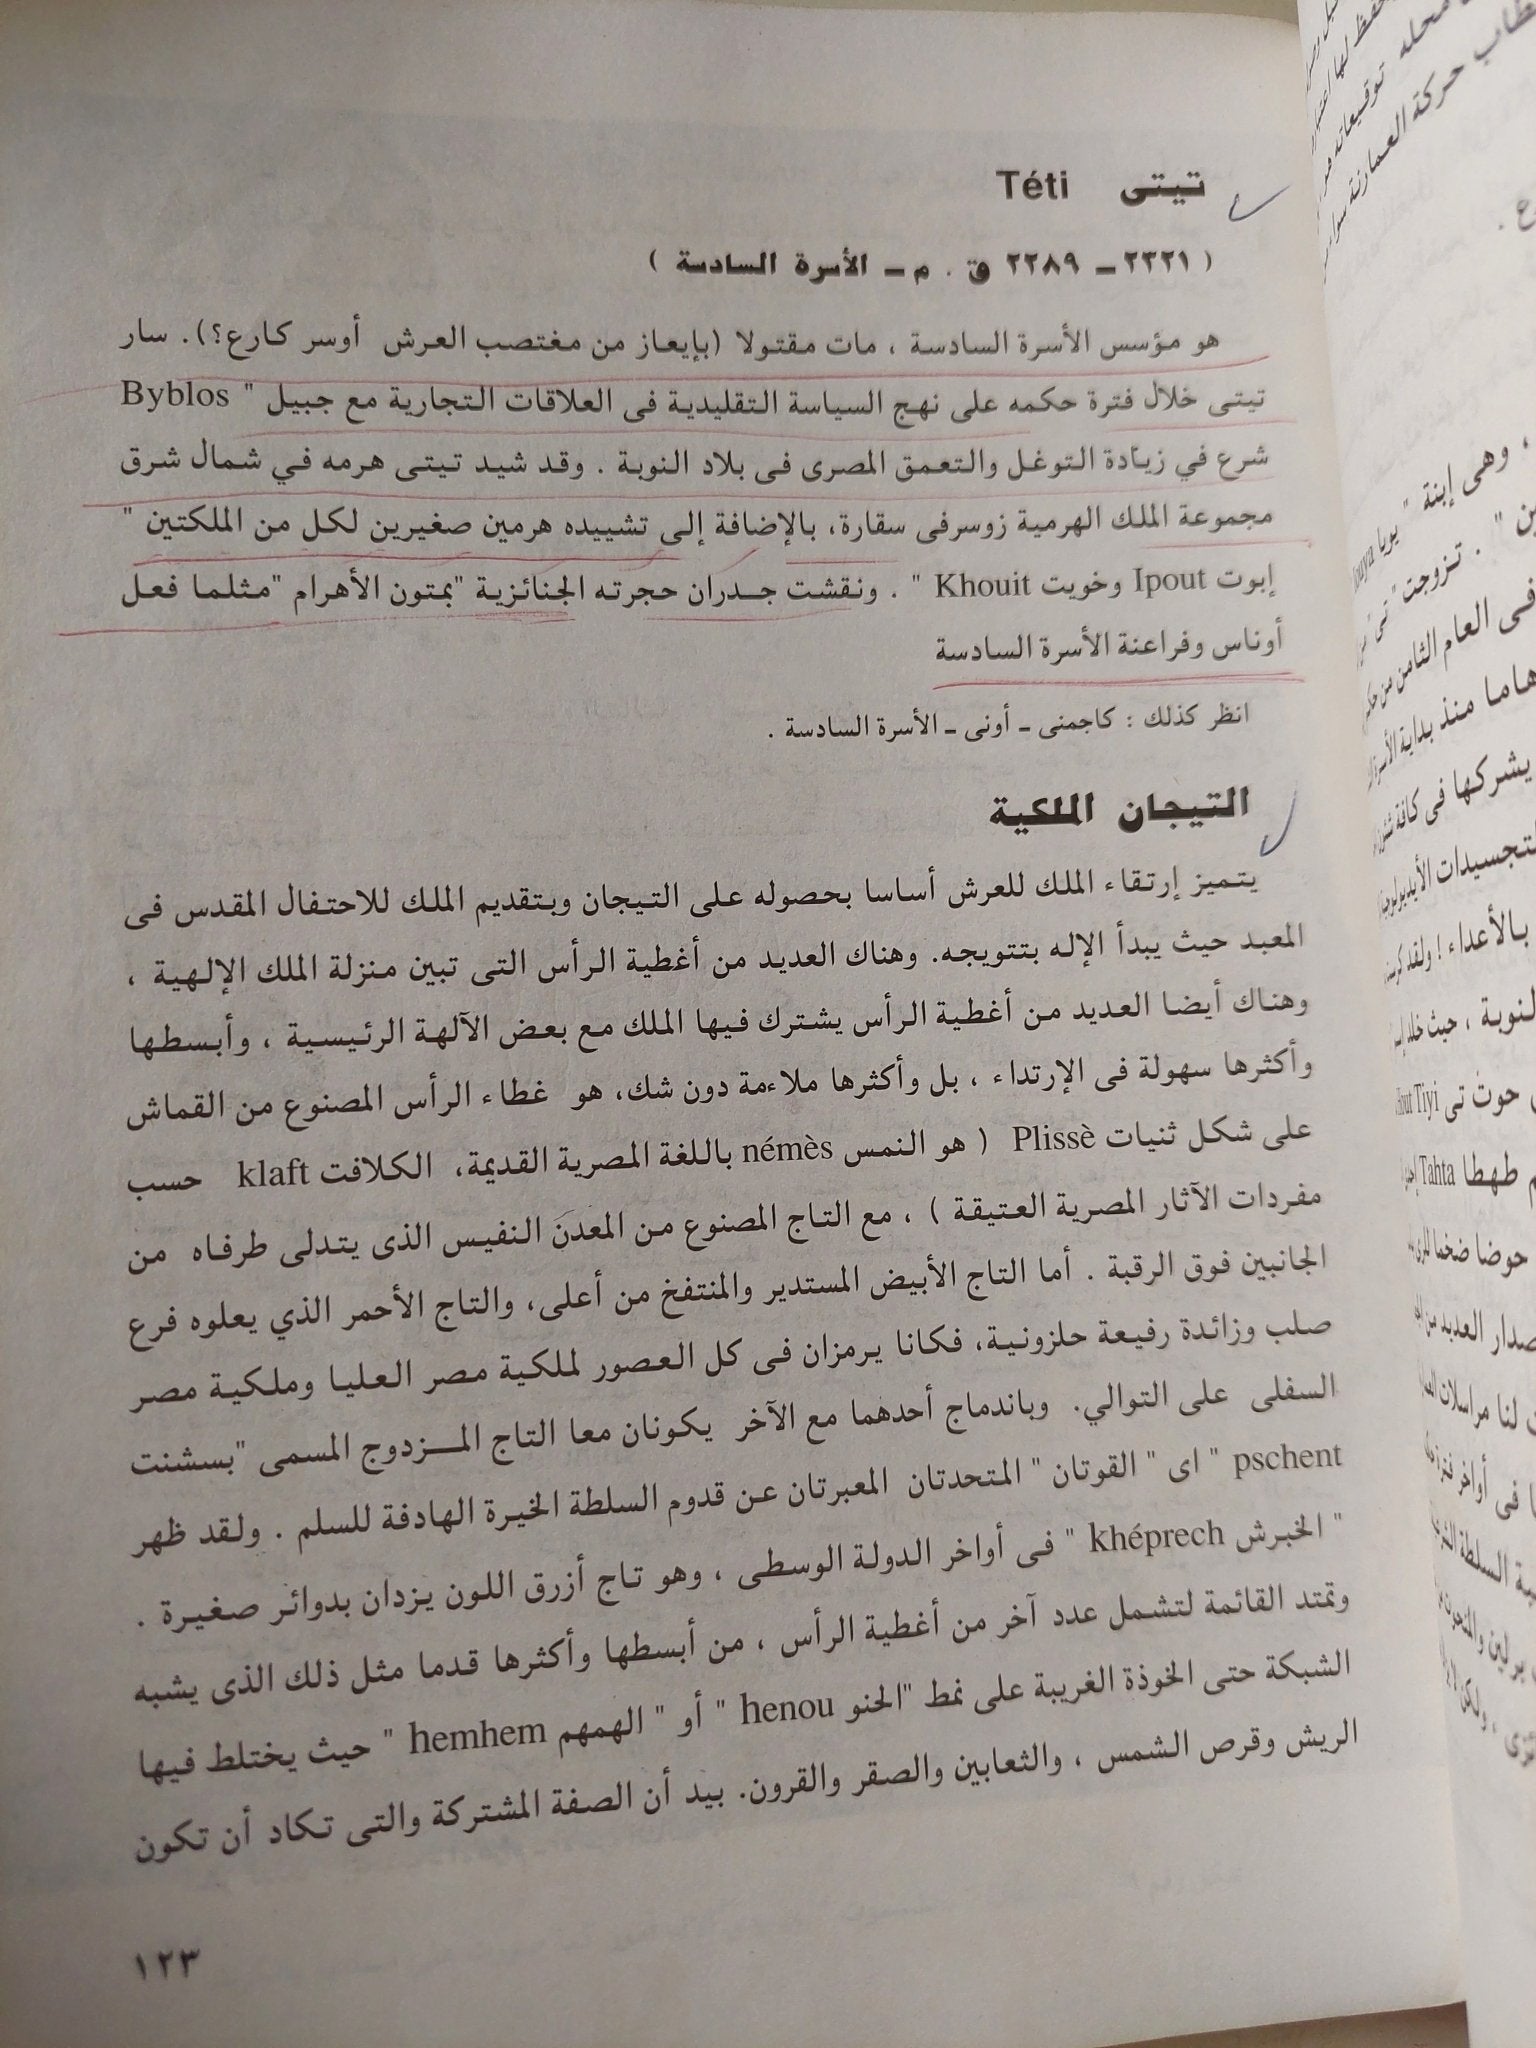 تيتى Téti
( ٢٣٢١ ــ ٢٢٨٩ ق . م ــ الأسرة السادسة )
هو مؤسس الأسرة السادسة ، مات مقتولا (بإيعاز من مغتصب العرش أوسر كارع؟). سار
تيتى خلال فترة حكمه على نهج السياسة التقليدية فى العلاقات التجارية مع جبيل " Byblos
شرع في زيادة التوغل والتعمق المصرى فى بلاد النوبة . وقد شيد تيتى هرمه في شمال شرق
مجموعة الملك الهرمية زوسرفى سقارة، بالإضافة إلى تشييده هرمين صغيرين لكل من الملكتين "
إبوت Ipout وخويت Khouit " . ونقشت جدران حجرته الجنائزية "بمتون الأهرام "مثلما فعل
أوناس وفراعنة الأسرة السادسة
انظر كذلك : كاجمنى ــ أونى ــ الأسرة السادسة .
التيجان الملكية
يتميز إرتقاء الملك للعرش أساسا بحصوله على التيجان وبتقديم الملك للاحتفال المقدس فى
المعبد حيث يبدأ الإله بتتويجه. وهناك العديد من أغطية الرأس التى تبين منزلة الملك الإلهية ،
وهناك أيضا العديد من أغطية الرأس يشترك فيها الملك مع بعض الآلهة الرئيسية ، وأبسطها
وأكثرها سهولة فى الإرتداء ، بل وأكثرها ملاءمة دون شك، هو غطاء الرأس المصنوع من القماش
على شكل ثنيات Plissè ( هو النمس némès باللغة المصرية القديمة، الكلافت klaft حسب
مفردات الآثار المصرية العتيقة ) ، مع التاج المصنوع من المعدن النفيس الذى يتدلى طرفاه من
الجانبين فوق الرقبة . أما التاج الأبيض المستدير والمنتفخ من أعلى، والتاج الأحمر الذي يعلوه فرع
صلب وزائدة رفيعة حلزونية، فكانا يرمزان فى كل العصور لملكية مصر العليا وملكية مصر
السفلى على التوالي. وباندماج أحدهما مع الآخر يكونان معا التاج المـــزدوج المسمى "بسشنت
pschent " اى " القوتان " المتحدتان المعبرتان عن قدوم السلطة الخيرة الهادفة للسلم . ولقد ظهر
" الخبرش khéprech " فى أواخر الدولة الوسطى ، وهو تاج أزرق اللون يزدان بدوائر صغيرة .
وتمتد القائمة لتشمل عدد آخر من أغطية الرأس ، من أبسطها وأكثرها قدما مثل ذلك الذى يشبه
الشبكة حتى الخوذة الغريبة على نمط "الحنو henou " أو " الهمهم hemhem " حيث يختلط فيها
الريش وقرص الشمس ، والثعابين والصقر والقرون. بيد أن الصفة المشتركة والتى تكاد أن تكون
١٢٣
محله توقيعاته
حركة العمارنة
، وهى إبنة " يويا
. تزوجت " تى
فى العام الثامن من
هاما منذ بداية
يشركها فى كافة
بالأعداء ! ولقد
النوبة ، حيث
حوت تى Tiyi
طهطا Tahta
حوضا ضخما
العديد من
لنا مراسلات
فى أواخر
السلطة
برلين